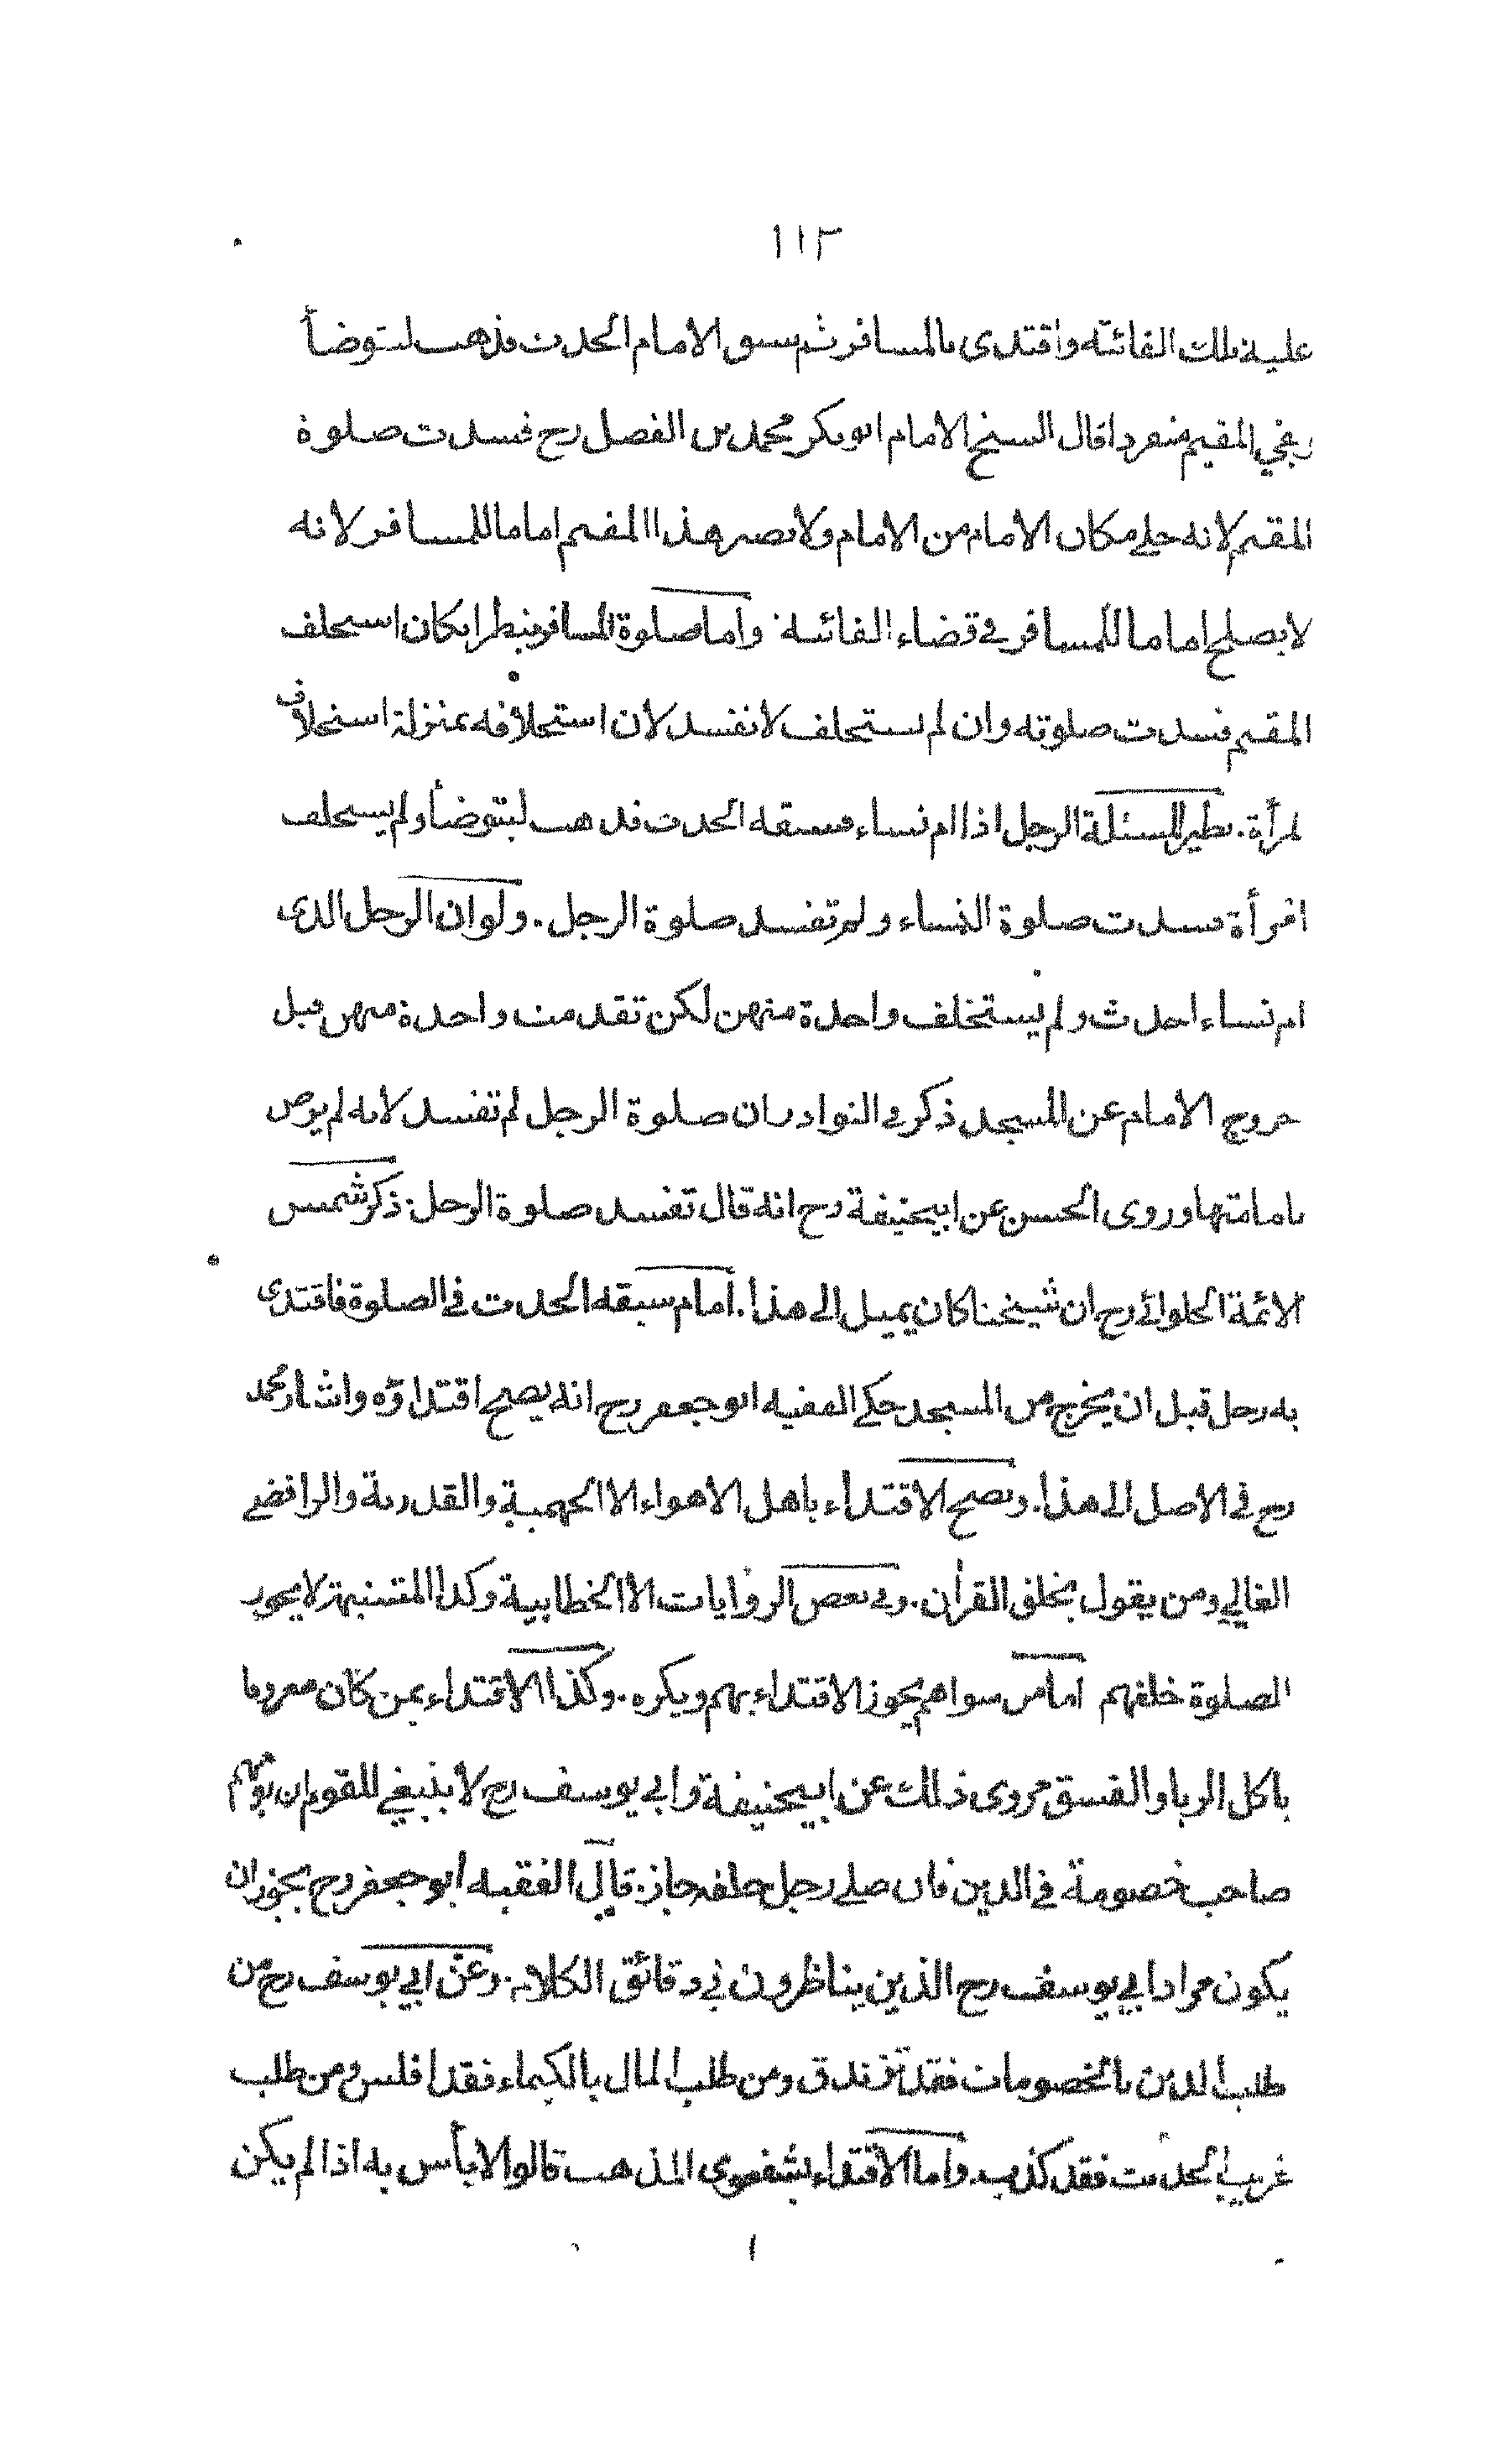 ١١٢
عليه تلك الفائتة واقتدى بالمسافر ثم سبق الامام الحدث فذهب ليتوضأ
وبقي المقيم منفردا قال الشيخ الامام ابو بكر محمد بن الفضل رح فسدت صلوة
المقيم لانه خلي مكان الامام من الامام ولا يصير هذا المقيم اماما للمسافر لانه
لا يصلح اماما للمسافر في قضاء الفائتة. واما صلوة المسافر ينظر ان كان استخلف
المقيم فسدت صلوته وان لم يستخلف لا تفسد لان استخلافه بمنزلة استخلاف
لمرأة. نظير المسئلة الرجل اذا ام نساء فسبقه الحدث فذهب ليتوضأ ولم يستخلف
امرأة فسدت صلوة النساء ولم تفسد صلوة الرجل. ولو ان الرجل الذى
ام نساء احدث ولم يستخلف واحدة منهن لكن تقدمت واحدة منهن قبل
خروج الامام عن المسجد ذكر في النوادر ان صلوة الرجل لم تفسد لانه لم يرض
بامامتها وروى الحسن عن ابيحنيفة رح انه قال تفسد صلوة الرجل. ذكر شمس
الائمة الحلوائي رح ان شيخنا كان يميل الى هذا. امام سبقه الحدث في الصلوة فاقتدى
به رجل قبل ان يخرج من المسجد حكي الفقيه ابو جعفر رح انه يصح اقتداؤه واشار محمد
رح في الاصل الى هذا. ويصح الاقتداء باهل الاهواء الا الجهمية والقدرية والرافضي
الغالي ومن يقول بخلق القرأن. وفي بعض الروايات الا الخطابية وكذا المتشبهة لا يجوز
الصلوة خلفهم اما من سواهم يجوز الاقتداء بهم ويكره. وكذا الاقتداء بمن كان معروفا
باكل الربا والفسق مروى ذلك عن ابيحنيفة وابي يوسف رح لا ينبغي للقوم ان يؤمهم
صاحب خصومة في الدين فان صلى رجل خلفه جاز. قال الفقيه ابو جعفر رح يجوز ان
يكون مراد ابي يوسف رح الذين يناظرون في دقائق الكلام. وعن ابي يوسف رح من
طلب الدين بالخصومات فقد تزندق ومن طلب المال بالكيماء فقد افلس ومن طلب
غريب الحديث فقد كذب. واما الاقتداء بشفعوى المذهب قالوا لا بأس به اذا لم يكن